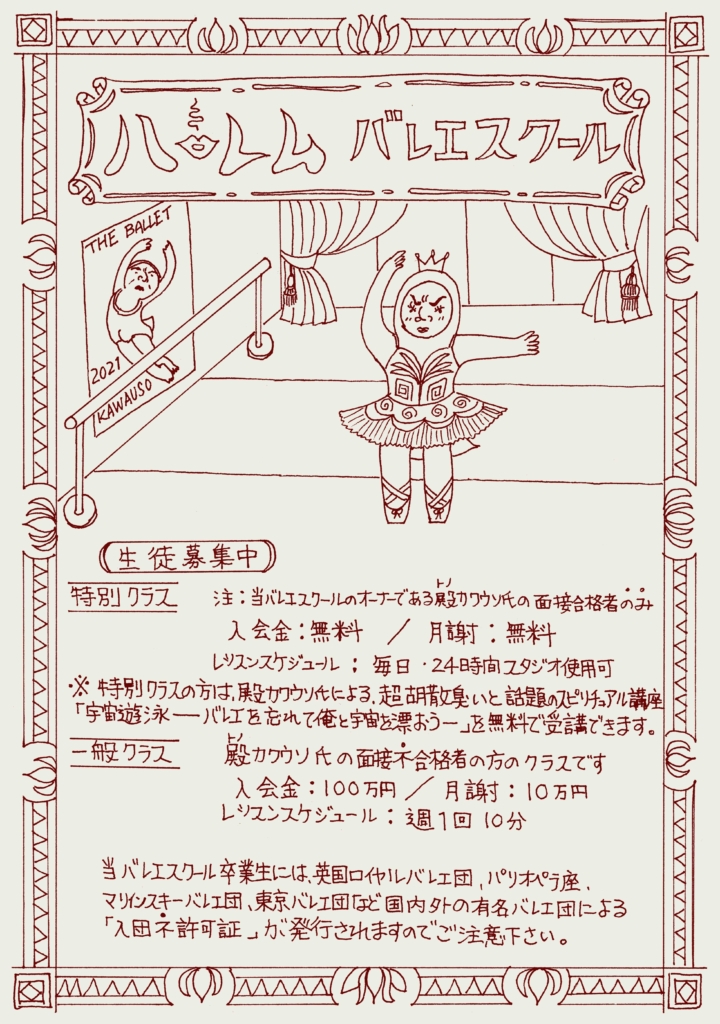 ハーレム バレエスクール
THE BALLET
2021
KAWAUSO
生徒募集中
特別クラス 注：当バレエスクールのオーナーである殿カワウソ氏の面接合格者のみ
トノ
入会金：無料 ／ 月謝：無料
レッスンスケジュール：毎日・24時間スタジオ使用可
※ 特別クラスの方は、殿カワウソ氏による、超胡散臭いと話題のスピリチュアル講座
「宇宙遊泳──バレエを忘れて俺と宇宙を漂おう─」を無料で受講できます。
一般クラス 殿カワウソ氏の面接不合格者の方のクラスです
トノ
入会金：100万円 ／ 月謝：10万円
レッスンスケジュール：週1回10分
当バレエスクール卒業生には、英国ロイヤルバレエ団、パリオペラ座、
マリインスキーバレエ団、東京バレエ団など国内外の有名バレエ団による
「入団不許可証」が発行されますのでご注意下さい。